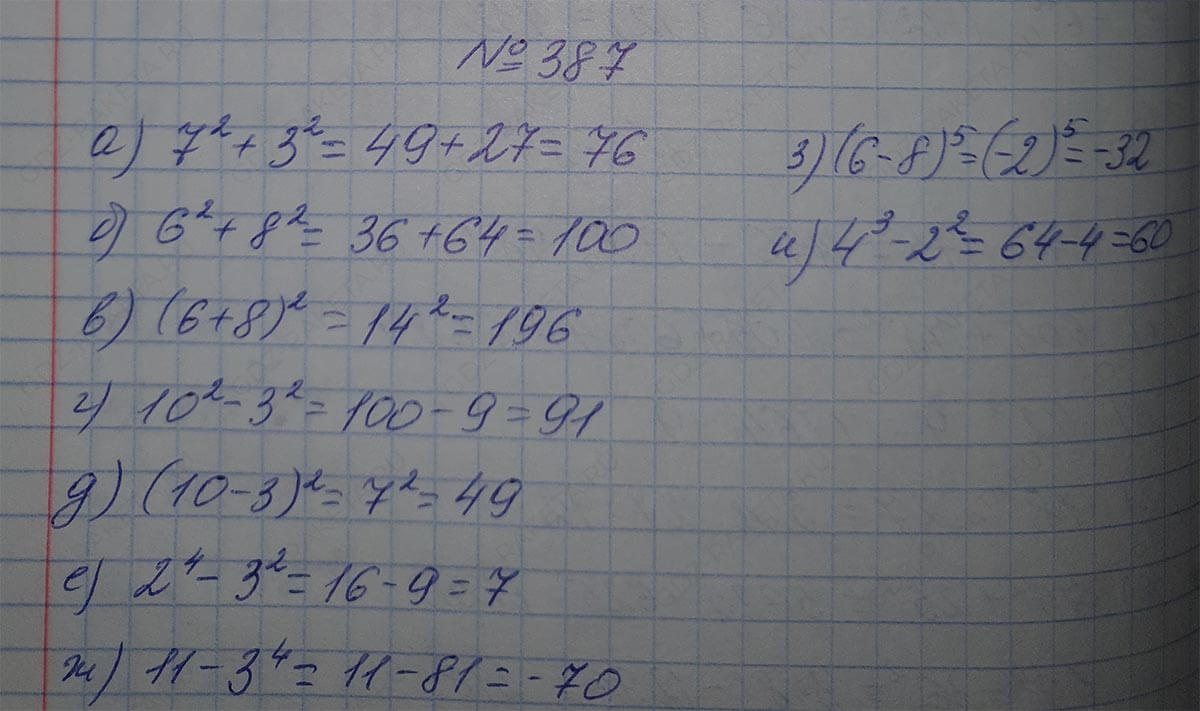 № 387
а) 7² + 3² = 49 + 27 = 76
б) 6² + 8² = 36 + 64 = 100
в) (6+8)² = 14² = 196
г) 10² - 3² = 100 - 9 = 91
д) (10-3)² = 7² = 49
е) 2⁴ - 3² = 16 - 9 = 7
ж) 11 - 3⁴ = 11 - 81 = -70
з) (6-8)⁵ = (-2)⁵ = -32
и) 4³ - 2² = 64 - 4 = 60